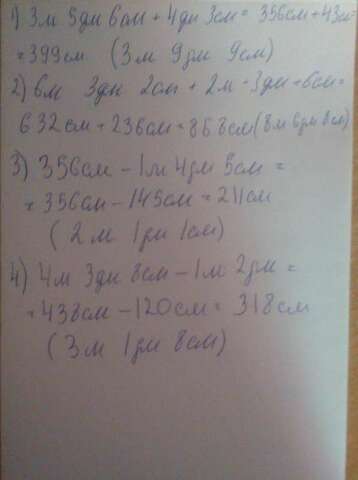 1) 3м 5дм 6см + 4дм 3см = 356см + 43см
= 399см (3м 9дм 9см)
2) 6м 3дм 2см + 2м 3дм + 6см =
632см + 236см = 868см (8м 6дм 8см)
3) 356см - 1м 4дм 5см =
= 356см - 145см = 211см
(2м 1дм 1см)
4) 4м 3дм 8см - 1м 2дм =
= 438см - 120см = 318см
(3м 1дм 8см)